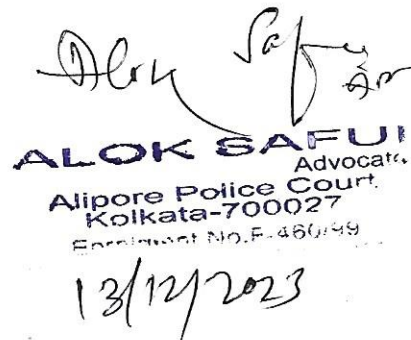 Alok Safui
ALOK SAFUI
Advocate,
Alipore Police Court
Kolkata-700027
Enrolment No.F-460/99
13/12/2023